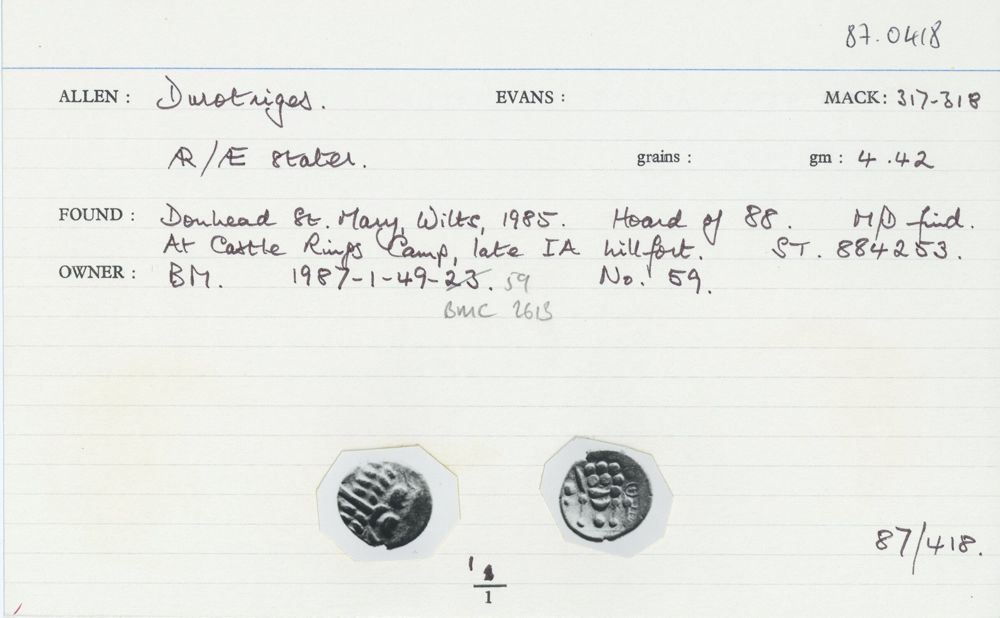 87.0418
ALLEN : Durotriges. EVANS : MACK: 317-318
Æ/Æ Stater. grains : gm : 4.42
FOUND : Donhead St. Mary, Wilts, 1985. Hoard of 88. M/D find.
At Castle Rings Camp, late IA hillfort. ST. 884253.
OWNER : BM. 1987-1-49-23. 59 No. 59.
BMC 2613
87/418.
1
1